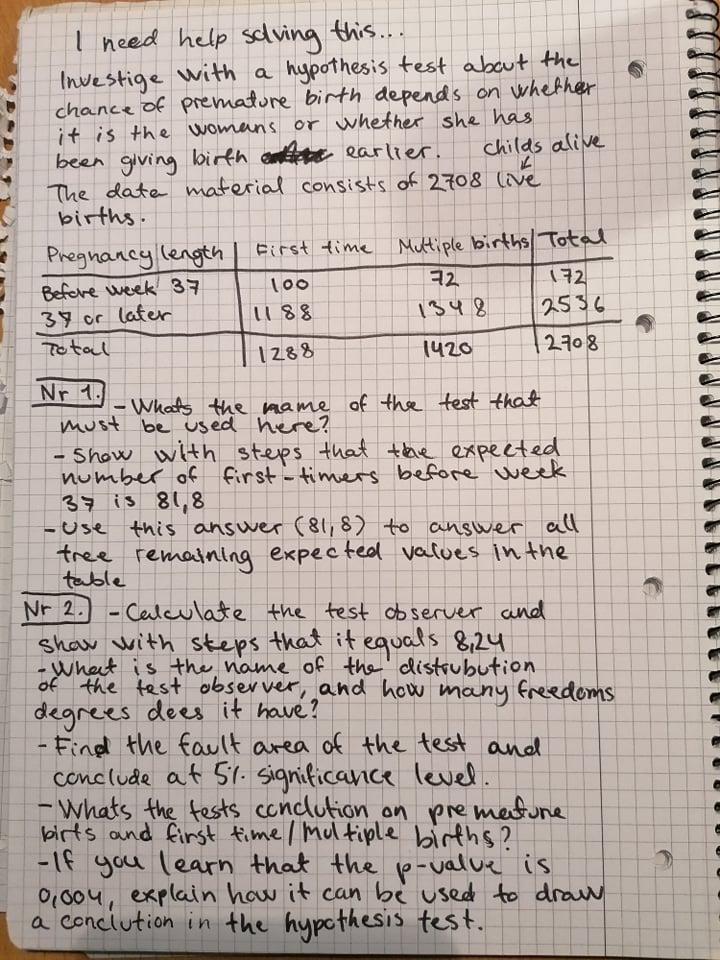 I need help solving this...
Investige with a hypothesis test about the
chance of premature birth depends on whether
it is the womans or whether she has
been giving birth earlier. childs alive
The data material consists of 2708 live
births.
Pregnancy length First time Multiple births Total
Before week 37 100 72 172
37 or later 1188 1348 2536
Total 1288 1420 2708
Nr 1. - Whats the name of the test that
must be used here?
- Show with steps that the expected
number of first-timers before week
37 is 81,8
- Use this answer (81,8) to answer all
tree remaining expected values in the
table
Nr 2. - Calculate the test observer and
show with steps that it equals 8,24
- What is the name of the distrubution
of the test observer, and how many freedoms
degrees does it have?
- Find the fault area of the test and
conclude at 5% significance level.
- Whats the tests conclution on premature
birts and first time/Multiple births?
- If you learn that the p-value is
0,004, explain how it can be used to draw
a conclution in the hypothesis test.